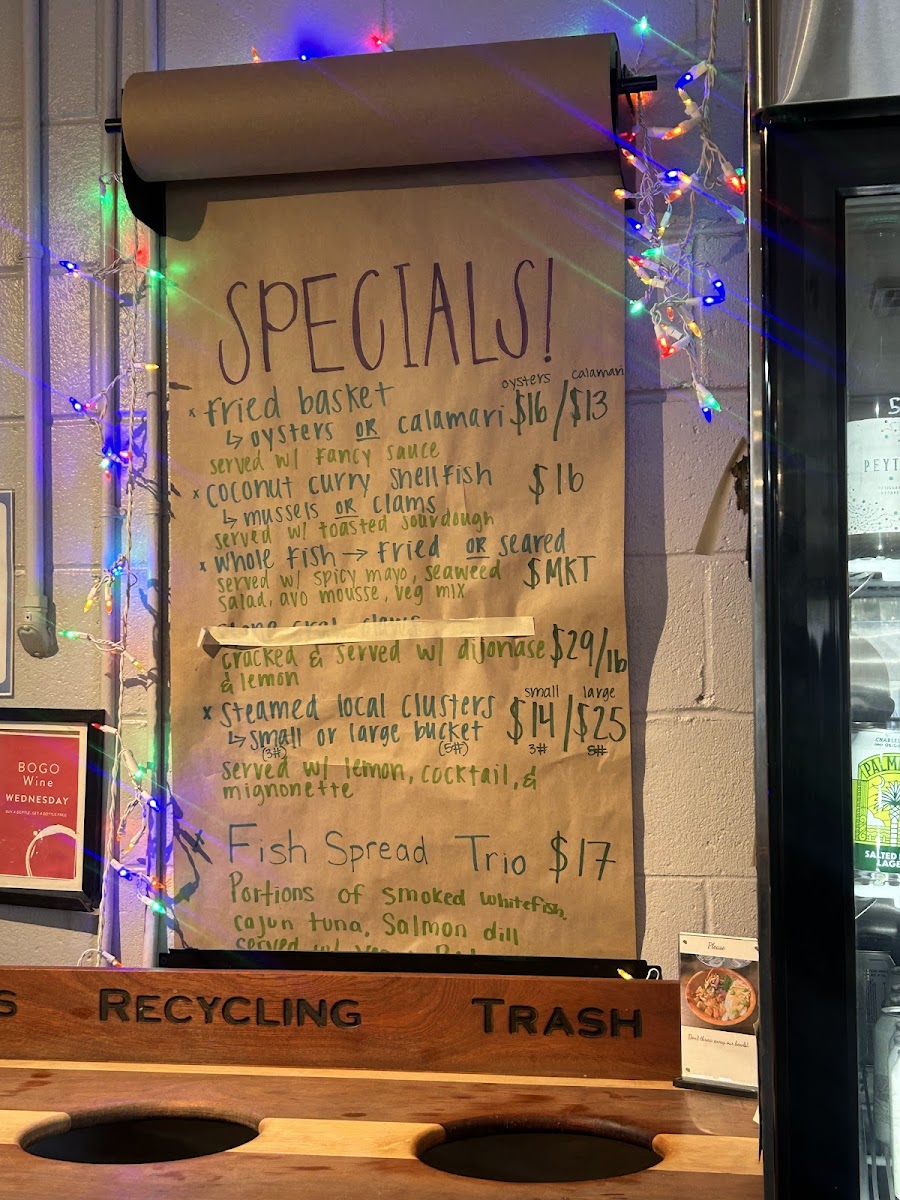 SPECIALS!
oysters calamari
x Fried basket $16/$13
↳ oysters OR calamari
served w/ Fancy sauce
x coconut curry shellfish $16
↳ mussels OR clams
served w/ toasted sourdough
x whole fish → Fried OR seared
served w/ spicy mayo, seaweed $MKT
salad, avo mousse, veg mix
cracked & served w/ dijonase $29/lb
& lemon
small large
x steamed local clusters $14/$25
↳ small or large bucket 3# 5#
(3#) (5#)
served w/ lemon, cocktail, &
mignonette
x Fish Spread Trio $17
Portions of smoked whitefish,
cajun tuna, Salmon dill
served w/
BOGO
Wine
WEDNESDAY
BUY A BOTTLE, GET A BOTTLE FREE
S RECYCLING TRASH
Please
Don't throw away our bowls!
PEYT
PALM
SALTED
LAGE